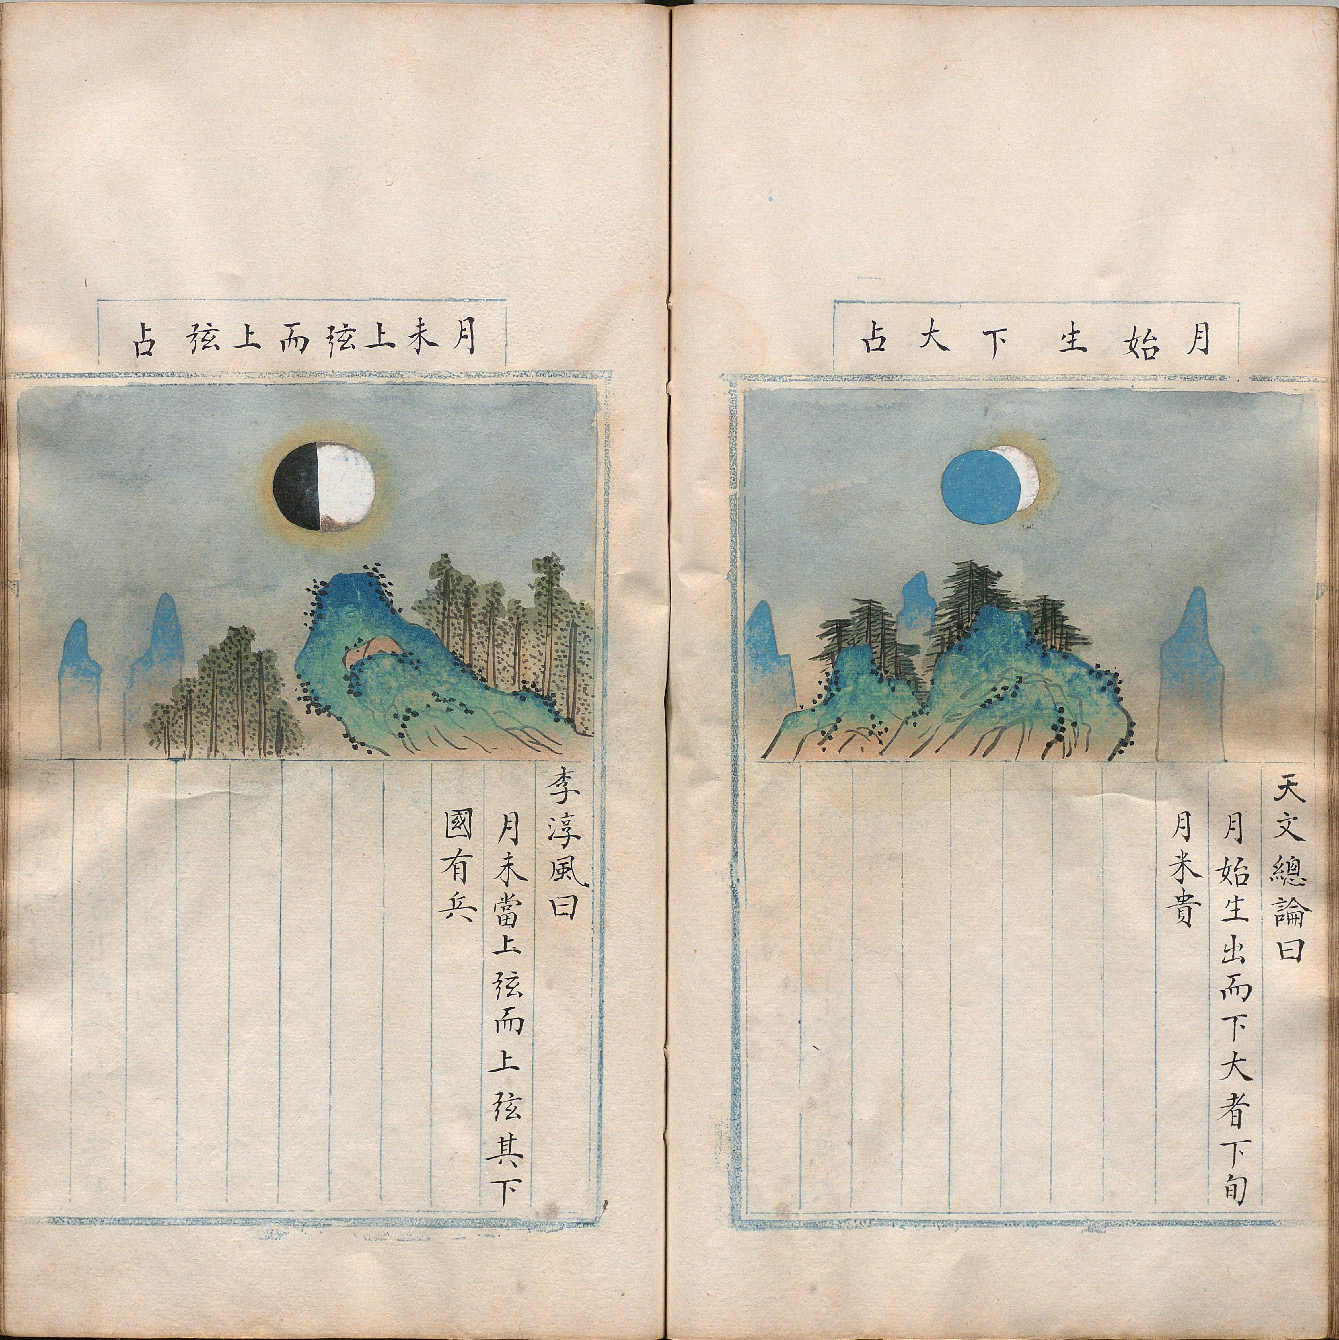 月始生下大占
天文總論曰
月始生出而下大者下旬
月米貴
月未上弦而上弦占
李淳風曰
月未當上弦而上弦其下
國有兵